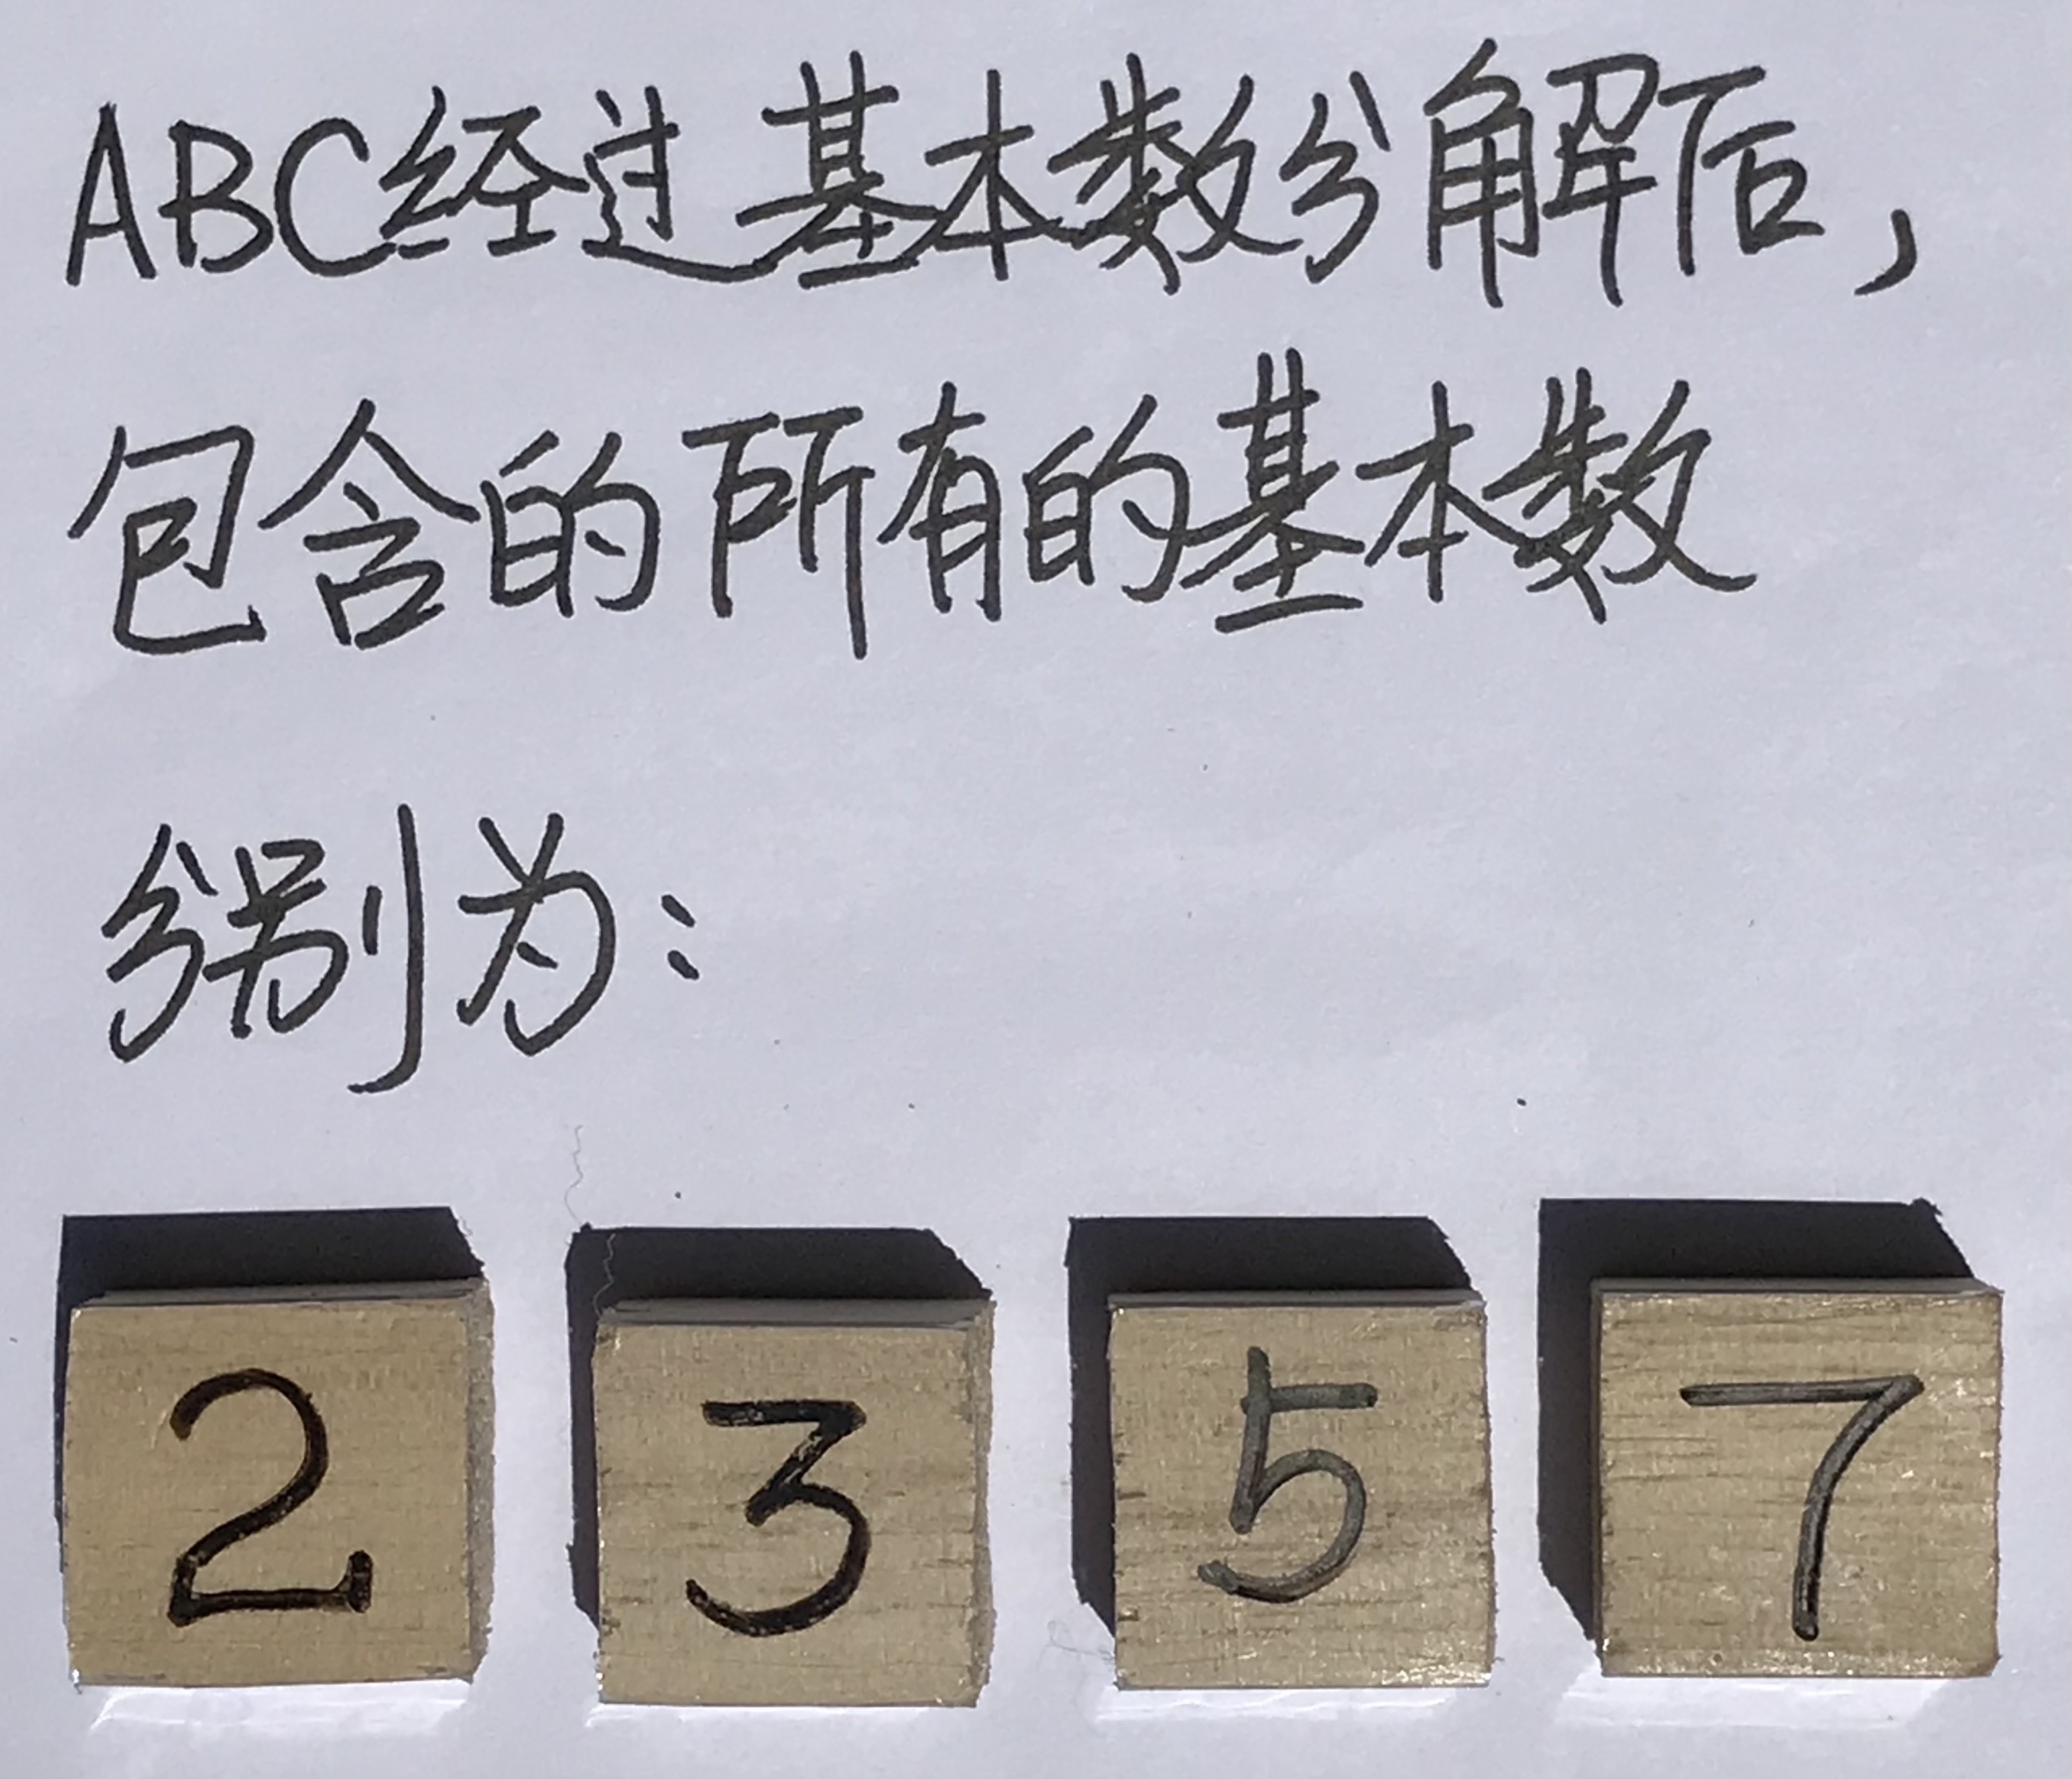 ABC经过基本数分解后,
包含的所有的基本数
分别为:
2 3 5 7